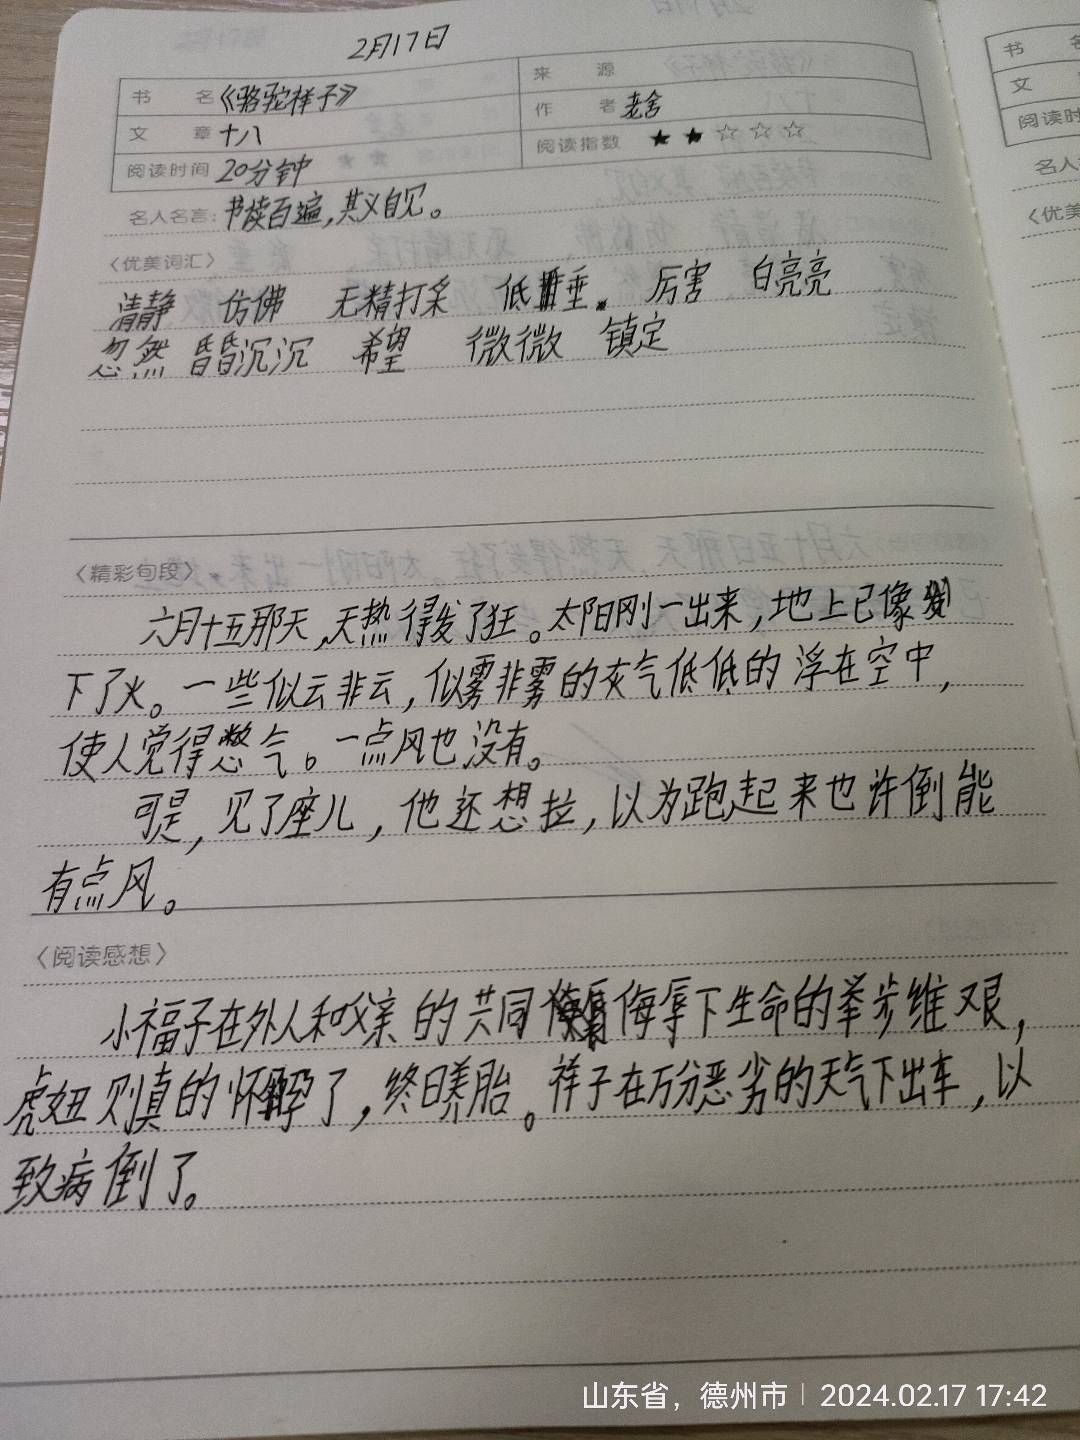 2月17日
书 名 《骆驼祥子》
来 源
文 章 十八
作 者 老舍
阅读时间 20分钟
阅读指数 ★★☆☆☆
名人名言: 书读百遍,其义自见。
〈优美词汇〉
清静 仿佛 无精打采 低垂 厉害 白亮亮
忽然 昏昏沉沉 希望 微微 镇定
〈精彩句段〉
六月十五那天,天热得发了狂。太阳刚一出来,地上已像
下了火。一些似云非云,似雾非雾的灰气低低的浮在空中,
使人觉得憋气。一点风也没有。
可是,见了座儿,他还想拉,以为跑起来也许倒能
有点风。
〈阅读感想〉
小福子在外人和父亲的共同侮辱下生命的举步维艰,
虎妞则真的怀孕了,终日养胎。祥子在万分恶劣的天气下出车,以
致病倒了。
书 名
文
阅读时
名人
〈优美
山东省,德州市 | 2024.02.17 17:42